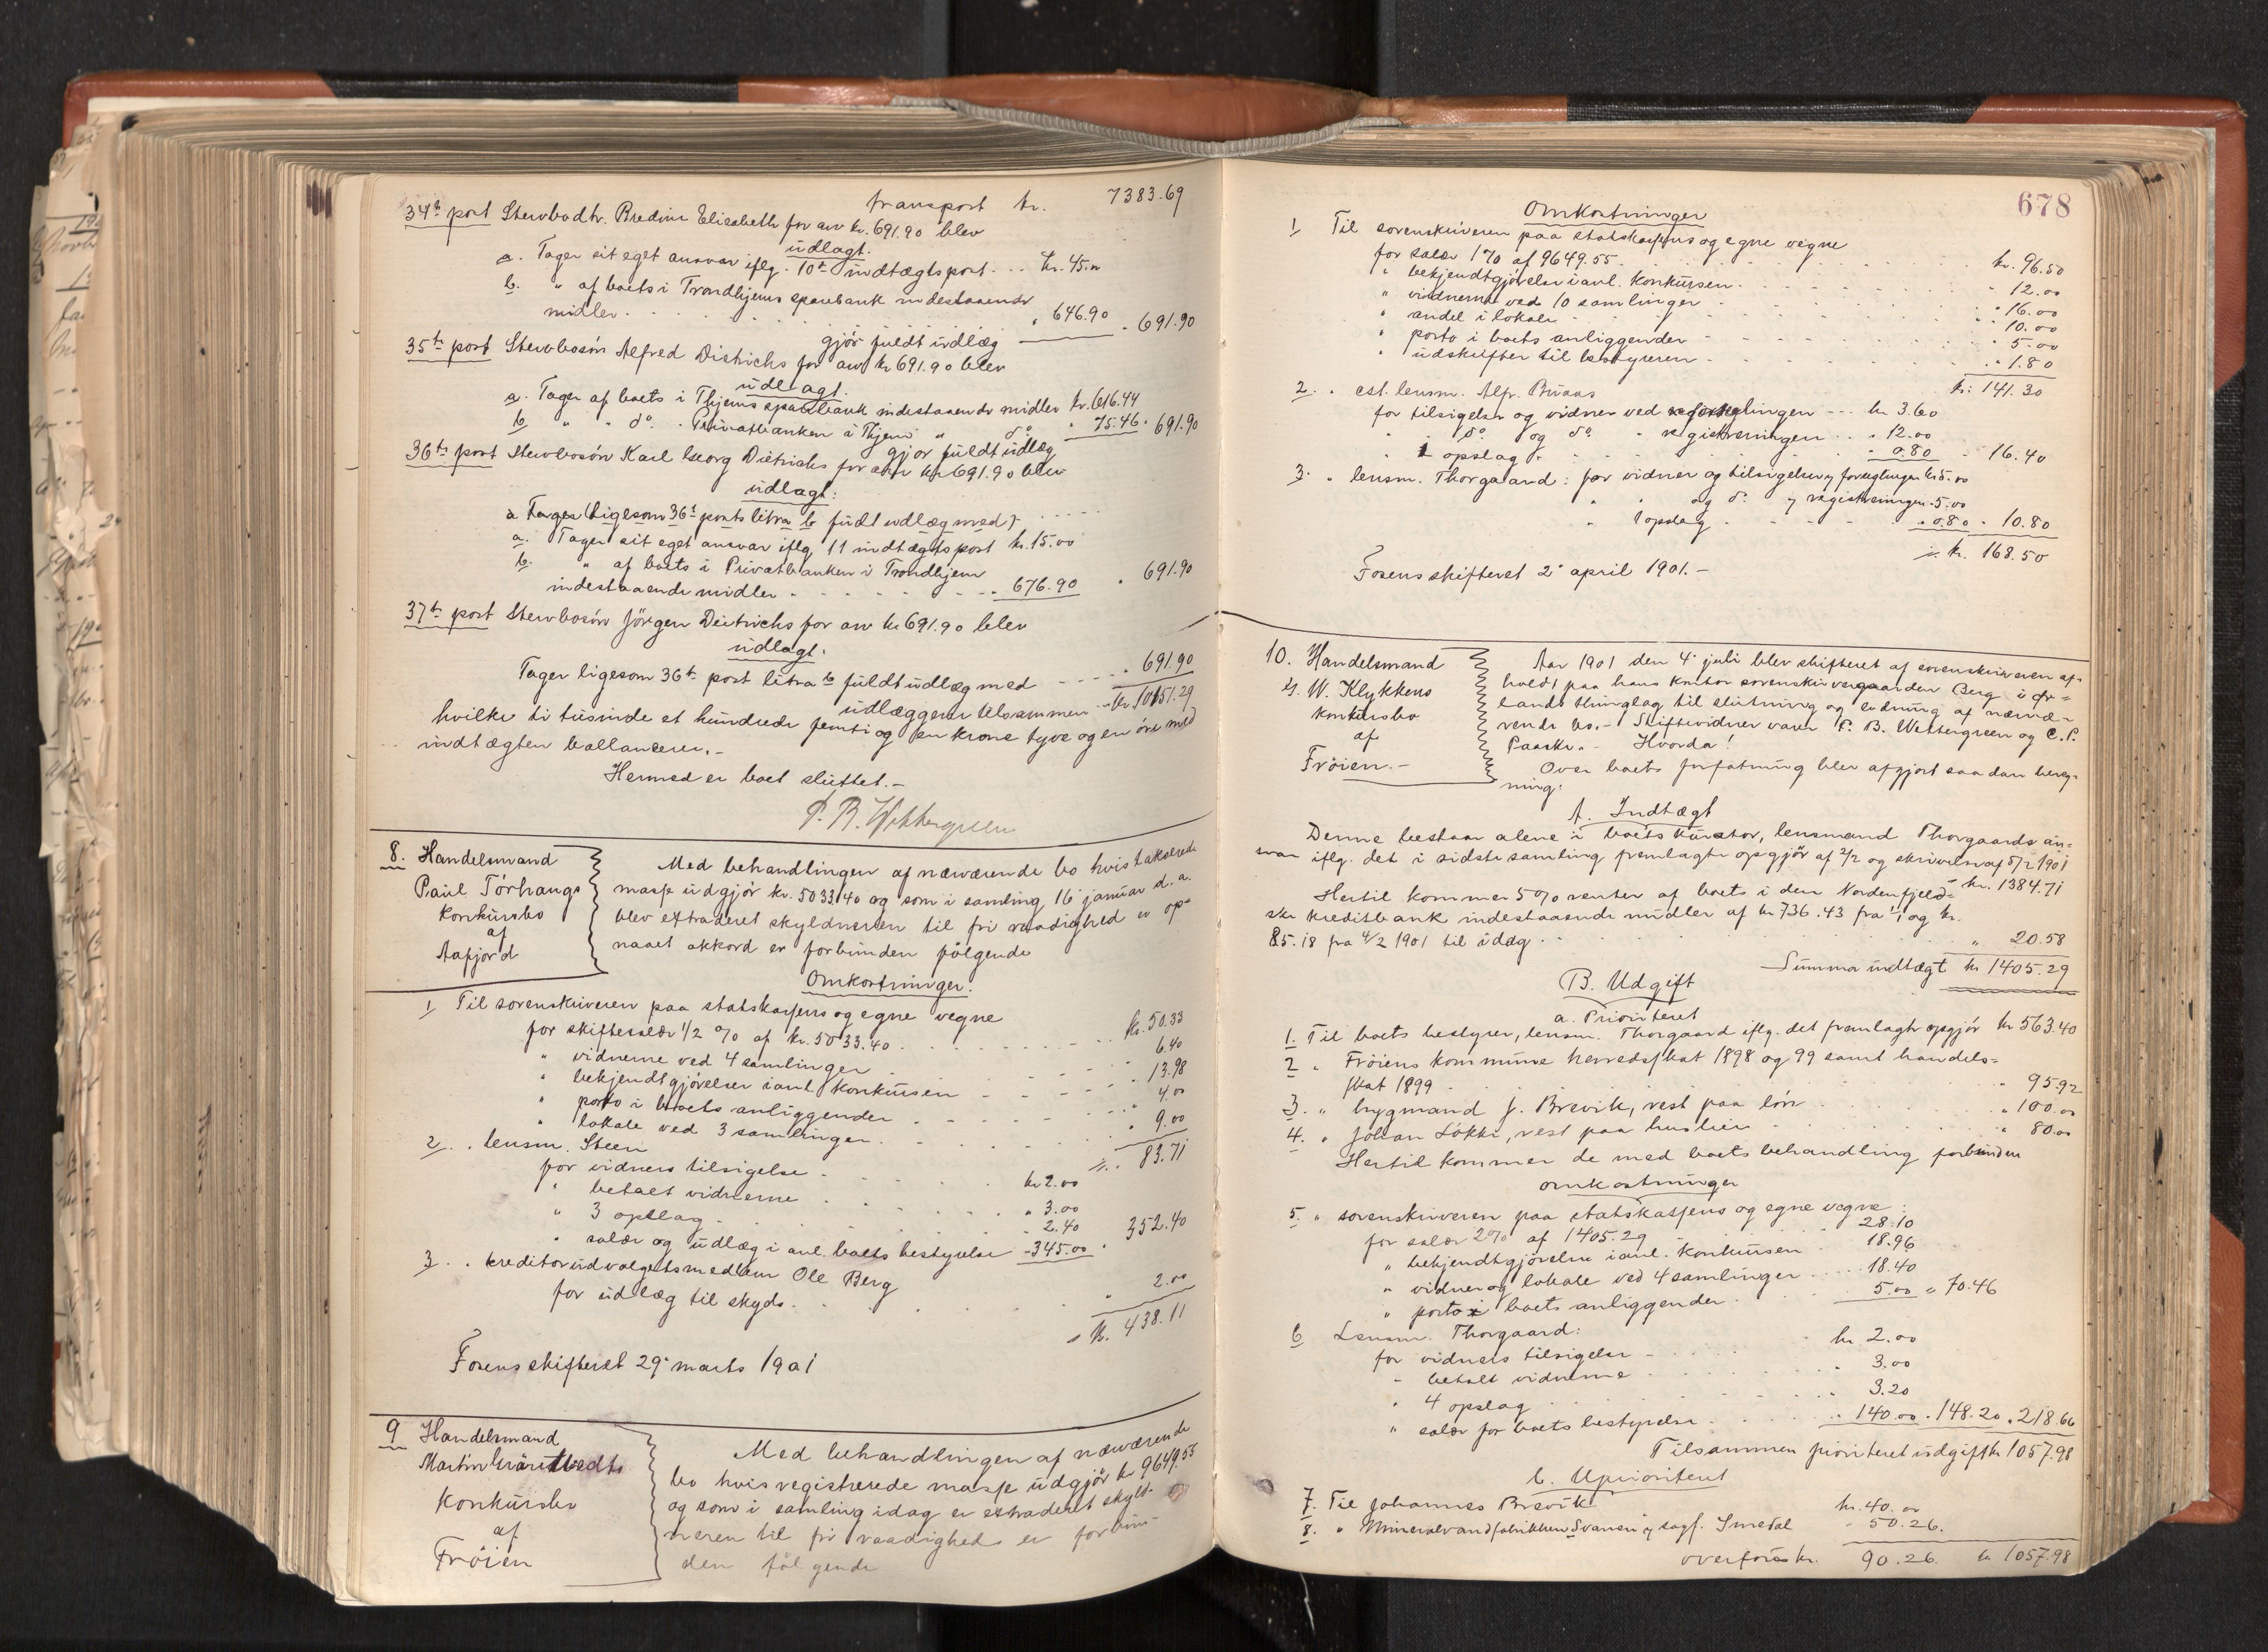 transport kr. 7383.69
34te post Stervbodtr. Bredine Elisabeth for arv kr. 691.90 blev
udlagt.
a. Tager sit eget ansvar iflg. 10de indtægtspost. .. kr. 45.00
b. " af boets i Trondhjems sparebank indestaaende
midler . . . . . " 646.90
gjør fuldt udlæg " 691.90
35te post Stervbosøn Alfred Dietrichs for arv kr 691.90 blev
udlagt.
a. Tager af boets i Thjems sparebank indestaaende midler kr. 616.44
b " " do. " Privatbanken i Thjem " do " 75.46 " 691.90
gjør fuldt udlæg
36te post Stervbosøn Karl Georg Dietrichs for arv kr 691.90 blev
udlagt:
a Tages (Ligesom 36te posts litra b fuldt udlæg med) . . . . .
a. Tager sit eget ansvar iflg 11 indtægtspost kr. 15.00
b. " af boets i Privatbanken i Trondhjem
indestaaende midler . . . . . 676.90 " 691.90
37te post Stervbosøn Jörgen Dietrichs for arv kr 691.90 blev
udlagt.
Tager ligesom 36te post litra b fuldt udlæg med . . . . . " 691.90
udlæggene tilsammen .. kr 10151.29
hvilke ti tusinde et hundrede femti og en krone tyve og en öre med
indtægten ballancerer.-
Hermed er boet sluttet.-
P. B. Wettergreen
8. Handelsmand
Paul Törhaugs
konkursbo
af
Aafjord
Med behandlingen af nærværende bo hvis takserede
masse udgjör kr. 5033.40 og som i samling 16 januar d. a.
blev extraderet skyldneren til fri raadighed er op-
naaet akkord er forbunden fölgende
Omkostninger.
1 Til sorenskriveren paa statskassens og egne vegne
for skiftesalær 1/2 % af kr. 5033.40 . . . . . kr. 50.33
" vidnerne ved 4 samlinger . . . . . 6.40
" bekjendtgjörelser i anl. konkursen . . . . 13.98
" porto i boets anliggender . . . . . " 4.00
" lokale ved 3 samlinger . . . . . " 9.00
83.71
2 . " lensm. Steen
for vidners tilsigelse . . . . kr 2.00
" betalt vidnerne . . . . " 3.00
" 3 opslag . . . . . " 2.40
" salær og udlæg i anl. boets bestyrelse - 345.00 " 352.40
3 . " kreditorudvalgetsmedlem Ole Berg
for udlæg til skyds . . . . . " 2.00
kr. 438.11
Fosens skifteret 29 marts 1901
9 Handelsmand
Martin
konkursbo
af
Fröien
Med behandlingen af nærværende
bo hvis registrerede masse udgjör kr 9649.55
og som i samling idag er extraderet skyld-
neren til fri raadigheds er forbun-
den fölgende
678
Omkostninger
1 Til sorenskriveren paa statskassens og egne vegne
for salær 1% af 9649.55 . . . . . kr. 96.50
" bekjendtgjörelse i anl. konkursen . . . . . " 12.00
" vidnerne ved 10 samlinger . . . . . " 16.00
" andel i lokale . . . . . " 10.00
" porto i boets anliggender . . . . . " 5.00
" udskrifter til bestyreren . . . . . " 1.80
kr. 141.30
2 . " cst. lensm. Alfr. Bruaas
for tilsigelse og vidner ved forseglingen --- kr 3.60
" do og do " registreringen . . " 12.00
" 1 opslag . . . . . " 0.80 " 16.40
3. " lensm. Thorgaard: for vidner og tilsigelse v forseglingen kr 5.00
" " og do v registreringen " 5.00
" 1 opslag . . . . " 0.80 " 10.80
kr. 168.50
Fosens skifteret 2 april 1901.-
10. Handelsmand
G. W. Klykkens
konkursbo
af
Fröien.-
Aar 1901 den 4 juli blev skifteret af sorenskriveren af-
holdt paa hans kontor sorenskrivergaarden Berg i Ør-
lands thinglag til slutning og lodning af nærvæ-
rende bo.- Skiftevidner varer P. B. Wettergreen og C. P.
Paaske.- Hvorda!
Over boets forfatning blev afgjort saadan bereg-
ning:
A. Indtægt
Denne bestaar alene i boets kurator, lensmand Thorgaards an-
svar iflg. det i sidste samling fremlagte opgjör af 2/2 og skrivelse af 5/2 1901
kr. 1384.71
Hertil kommer 5% renter af boets i den Nordenfjeld-
ske kreditbank indestaaende midler af kr 736.43 fra 1/1 og kr.
85.18 fra 4/2 1901 til idag . . . . . " 20.58
Summa indtægt kr 1405.29
B. Udgift
a. Prioriteret
1. Til boets bestyrer, lensm. Thorgaard iflg. det fremlagte opgjör kr 563.40
2 " Fröiens kommune herredsskat 1898 og 99 samt handels-
skat 1899 . . . . . " 95.92
3. " brygmand J. Brevik, rest paa lön . . . . " 100.00
4. " Johan Lökke, rest paa husleie . . . . " 80.00
Hertil kommer de med boets behandling forbundne
omkostninger
5. " sorenskriveren paa statskassens og egne vegne
for salær 2% af 1405.29 . . . 28.10
" bekjendtgjörelse i anl. konkursen . . 18.96
" vidner og lokale ved 4 samlinger . . . 18.40
" porto i boets anliggender . . . 5.00 " 70.46
6 Lensm. Thorgaard:
for vidners tilsigelse . . . . kr 2.00
" betalt vidnerne . . . . " 3.00
" 4 opslag . . . . " 3.20
" salær for boets bestyrelse . . . . " 140.00 " 148.20 " 218.66
Tilsammen prioriteret udgift kr 1057.98
b. Uprioriteret
7. Til Johannes Brevik kr. 40.00
8. " Mineralvandfabrikken Svanen v sagf. Smedal - 50.26.
overföres kr. 90.26. kr 1057.98